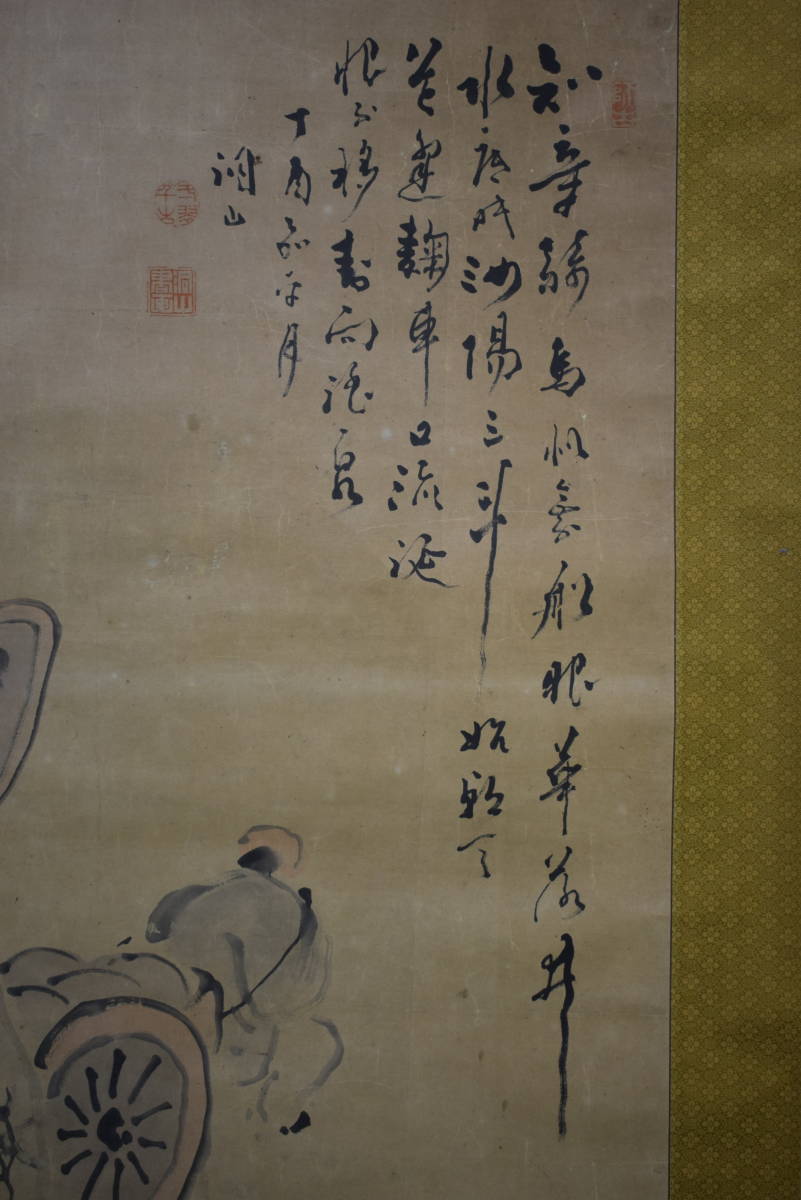 知章騎馬似乘船眼華落井
水底眠汝陽三斗始朝天
道逢麹車口流涎
恨不移封向酒泉
丁酉嘉平月
山